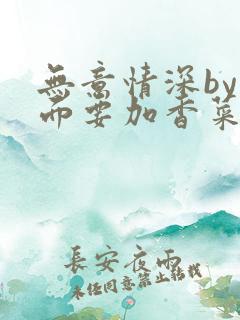 無意情深by
而要加香菜
長安夜雨
未经同意禁止转载